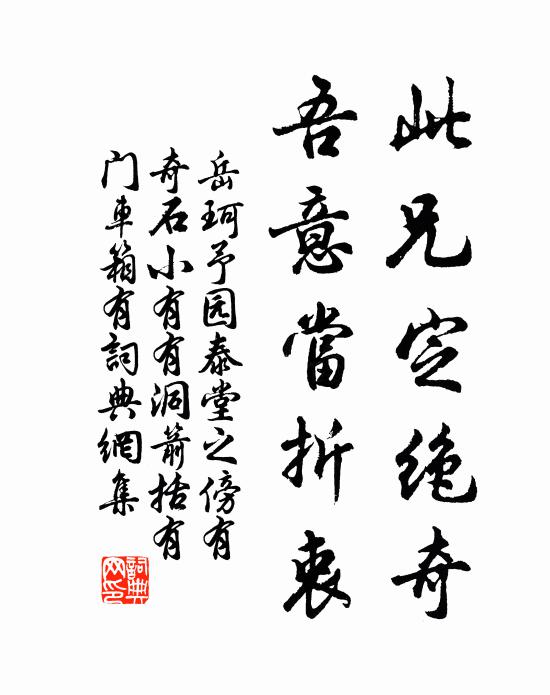 此兄定绝奇
吾意當折衷
岳珂予园泰堂之傍有
奇石小有有洞箭括有
门車箱有詞典網集
詞典网印